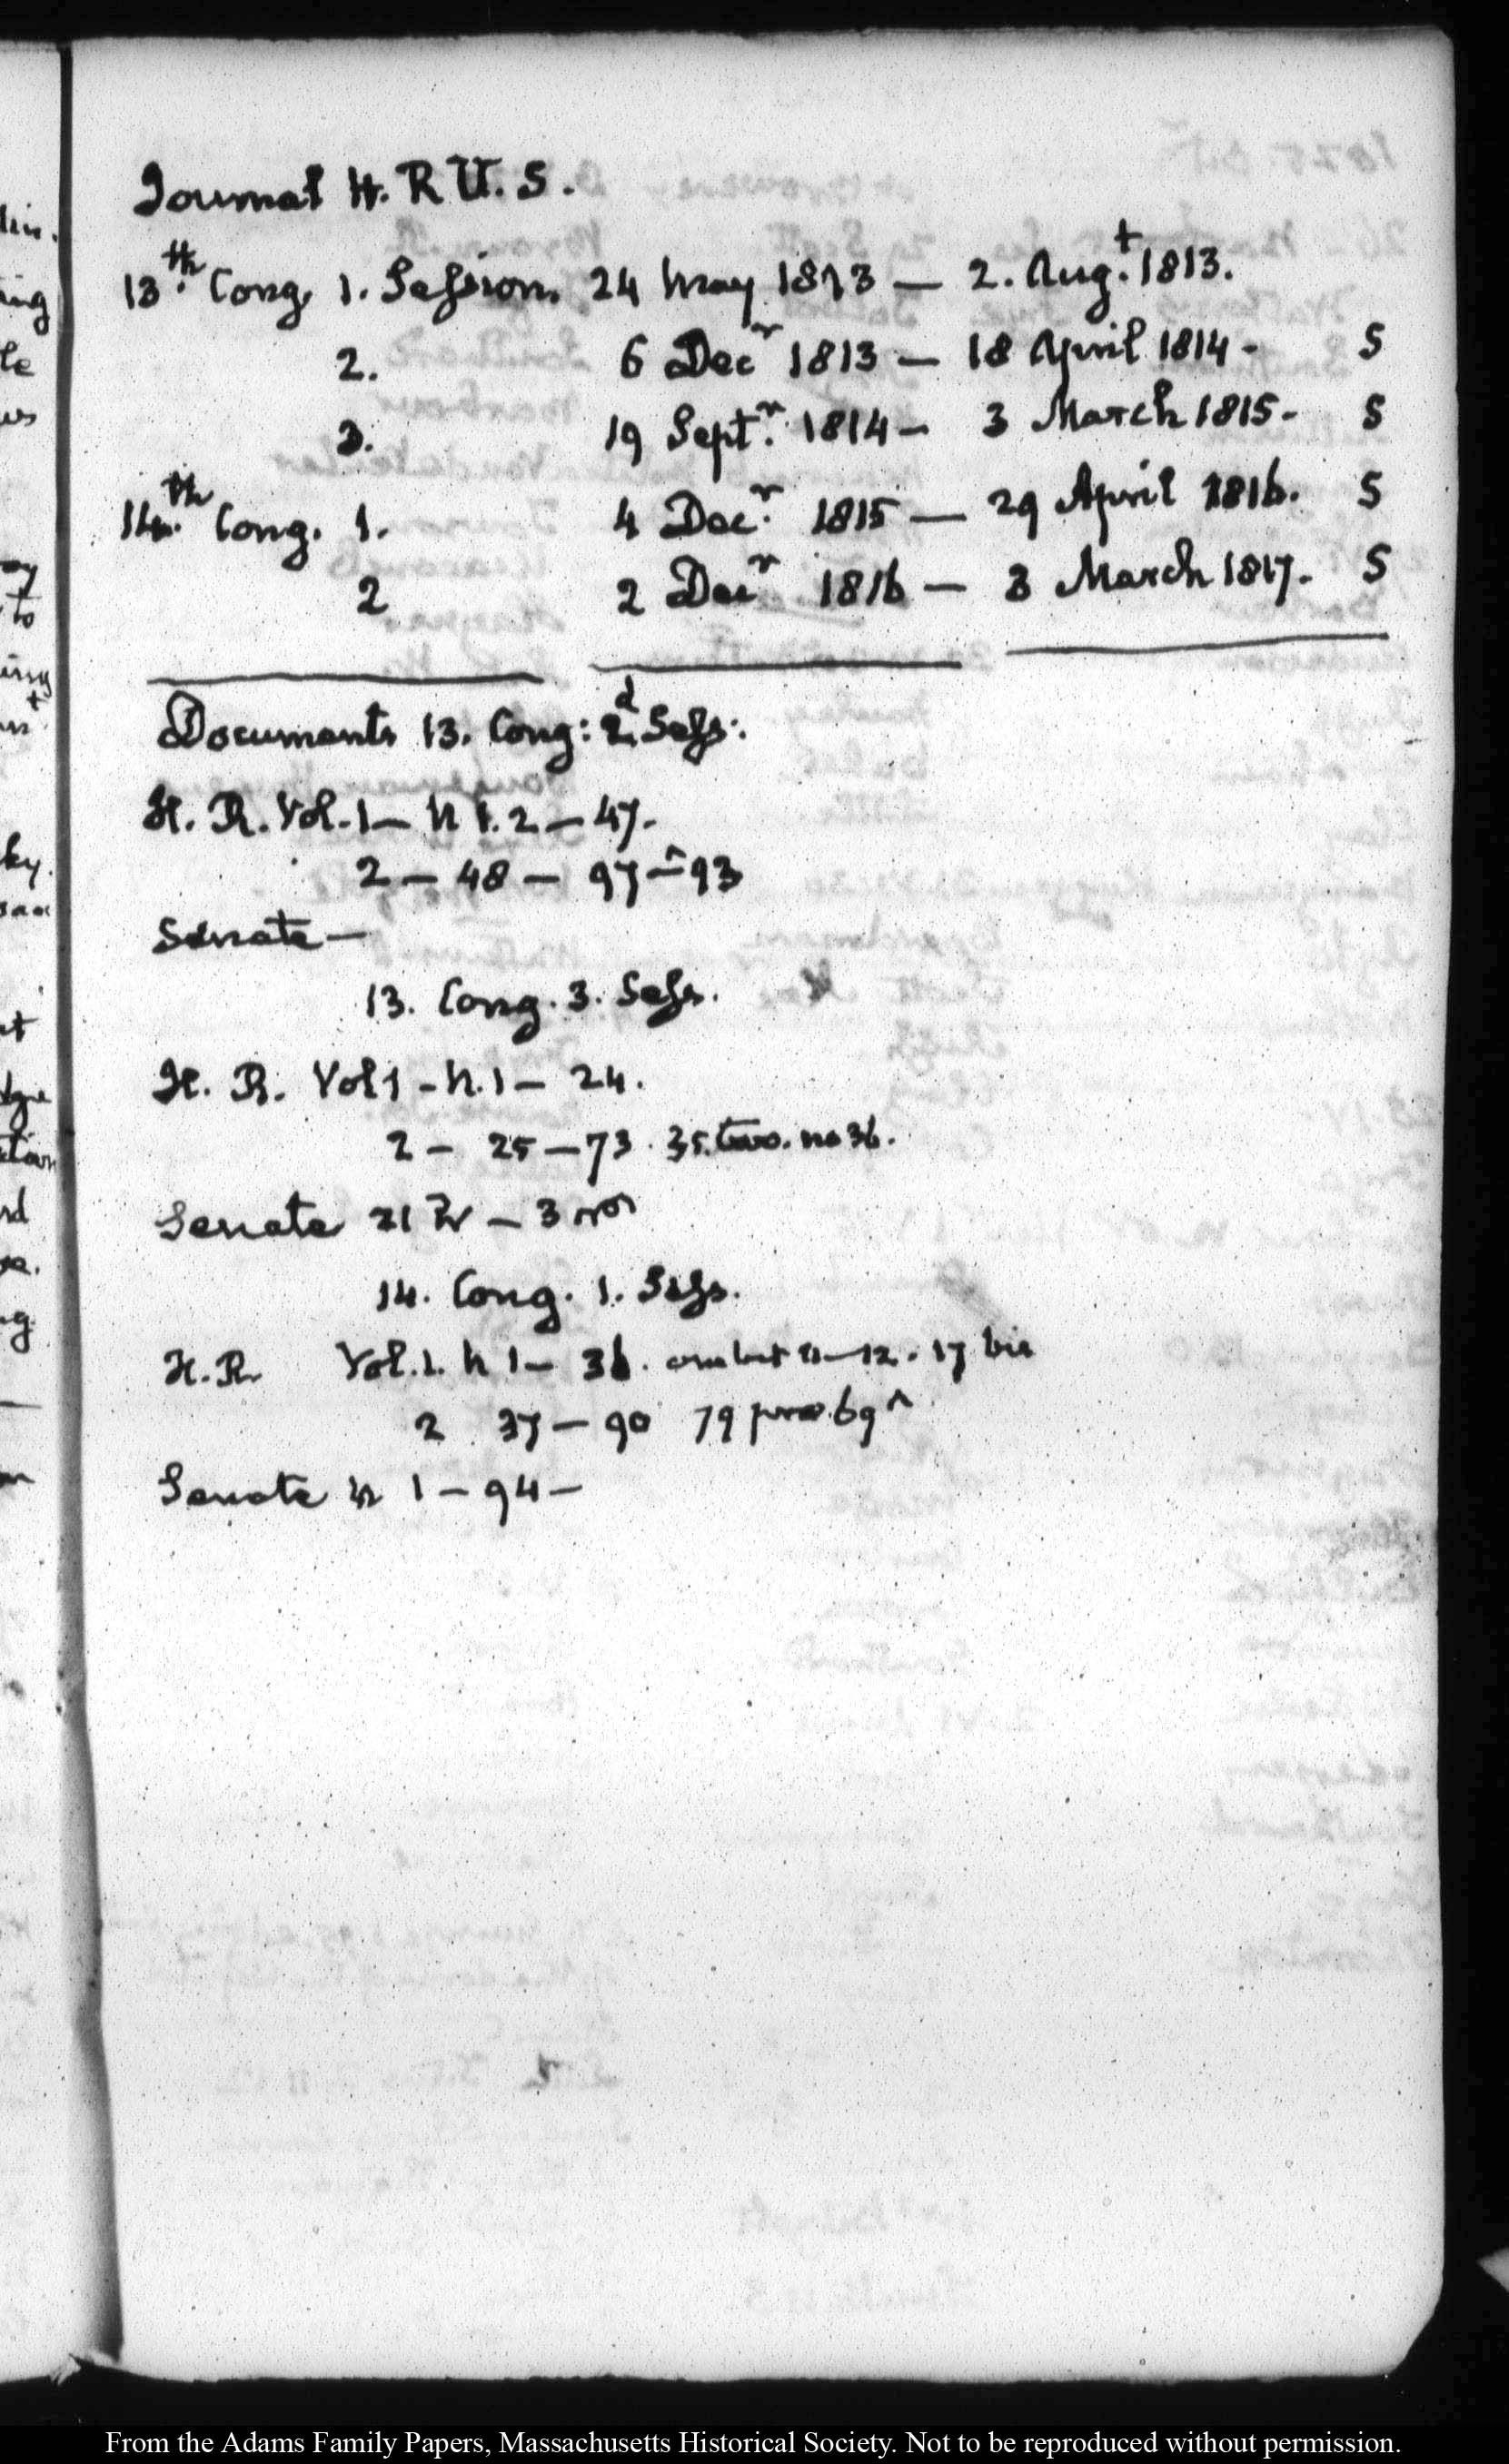 Journal H. R U. S.
13.th Cong. 1. Session 24 May 1813 — 2. Aug.t 1813.
2. 6 Decr 1813 — 18 April 1814 - S
3. 19 Sept.r 1814 - 3 March 1815 - S
14.th Cong. 1. 4 Dec.r 1815 — 29 April 1816. S
2 2 Decr 1816 — 3 March 1817. S
Documents 13. Cong: 2d Sess:
H. R. Vol. 1 — N 1. 2 — 47.
2 — 48 — 97 — 93
Senate —
13. Cong. 3. Sess.
H. R. Vol 1 - N. 1 — 24.
2 — 25 — 73. 35. two. no 36.
Senate 21 — 3
14. Cong. 1. Sess.
H. R. Vol. 1. N 1 — 36. 11 — 12. 17 bis
2 37 — 90 79 69
Senate N 1 — 94 —
From the Adams Family Papers, Massachusetts Historical Society. Not to be reproduced without permission.